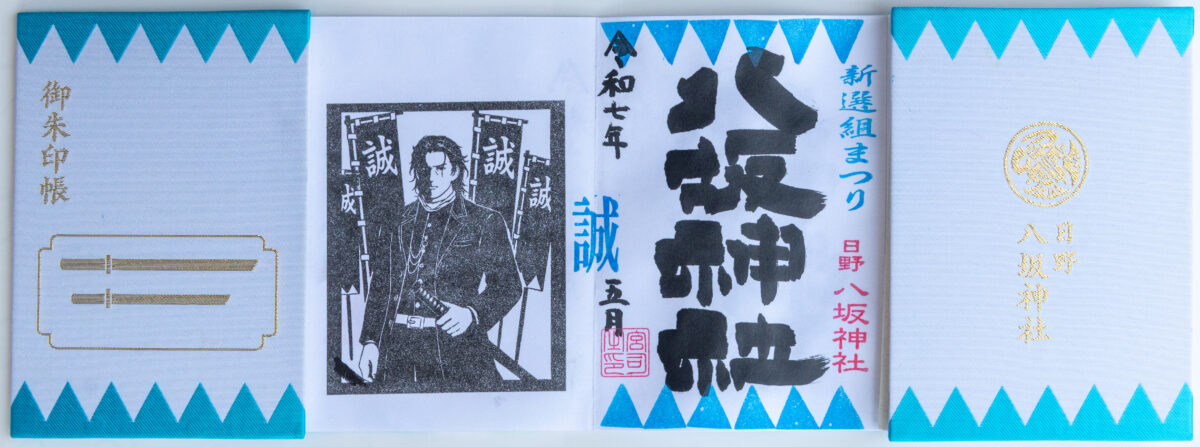 御朱印帳
誠
誠
誠
誠
誠
令和七年
五月
八坂神社
新選組まつり
日野 八坂神社
宮司之印
日野
八坂神社